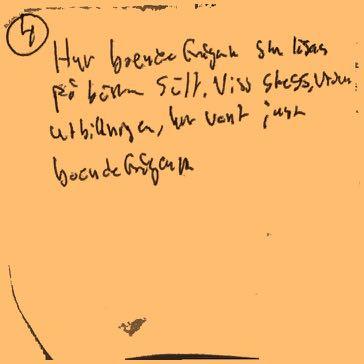 4
Hur boendefrågan ska lösas
på bästa sätt. Viss stress, utöver
utbildningen, har varit just
boendefrågan